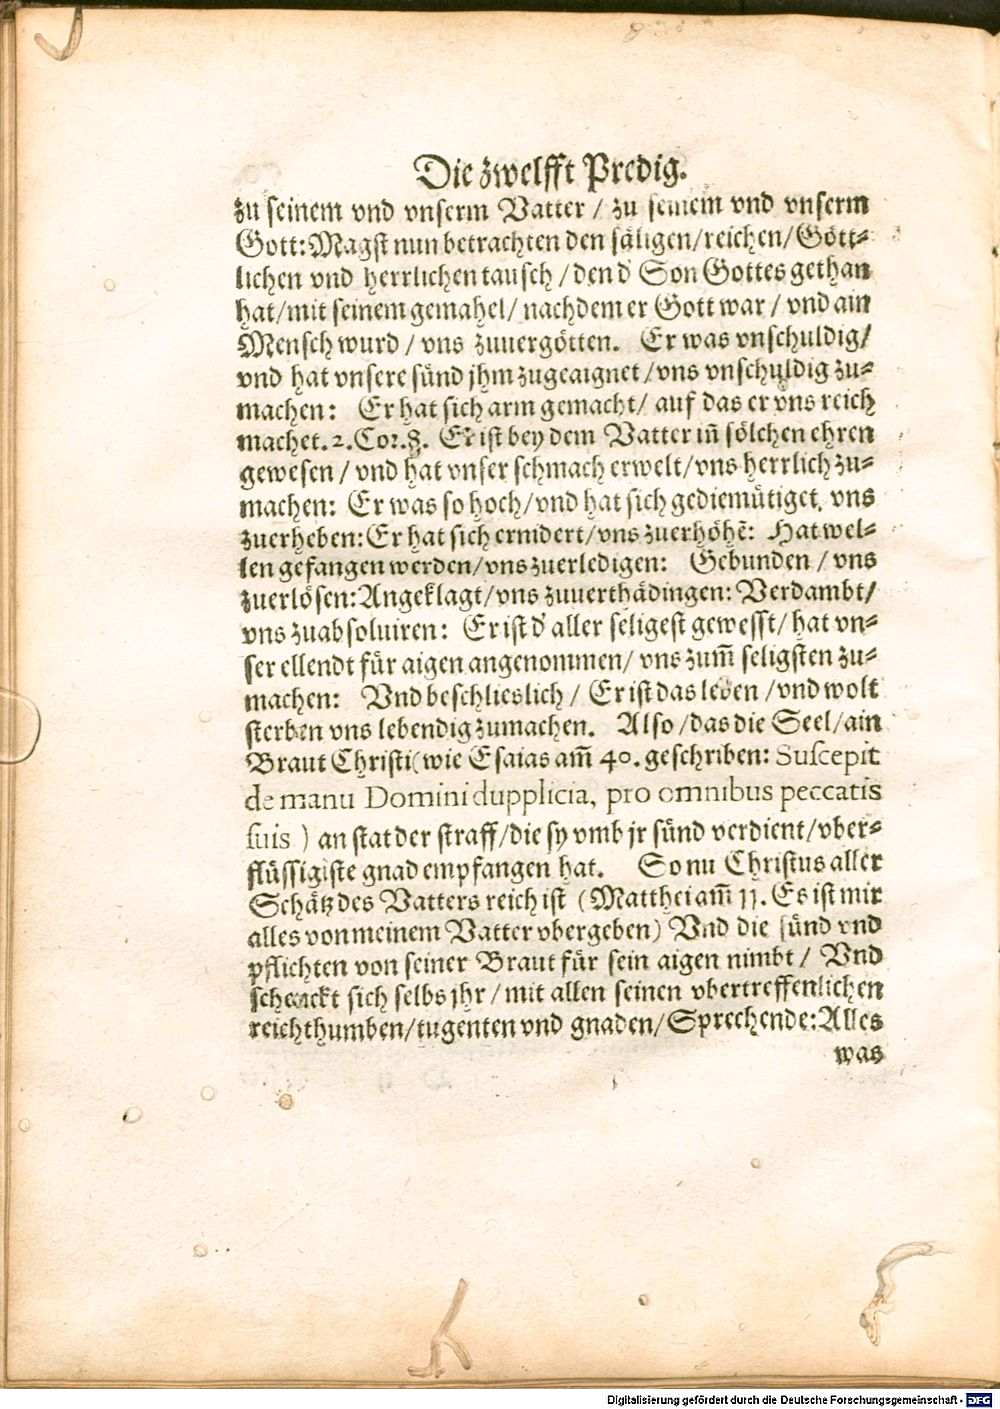 Die zwelfft Predig.
zu seinem vnd vnserm Vatter / zu seinem vnd vnserm
Gott: Magst nun betrachten den säligen/ reichen/ Gött⸗
lichen vnd herrlichen tausch / den d' Son Gottes gethan
hat/ mit seinem gemahel/ nachdem er Gott war / vnd ain
Mensch wurd / vns zuuergötten. Er was vnschuldig/
vnd hat vnsere sünd jhm zugeaignet / vns vnschuldig zu⸗
machen: Er hat sich arm gemacht/ auf das er vns reich
machet. 2. Cor. 8. Er ist bey dem Vatter iñ sölchen ehren
gewesen / vnd hat vnser schmach erwelt/ vns herrlich zu⸗
machen: Er was so hoch/ vnd hat sich gediemütiget, vns
zuerheben: Er hat sich ernidert/ vns zuerhöhẽ: Hat wel⸗
len gefangen werden/ vns zuerledigen: Gebunden / vns
zuerlösen: Angeklagt/ vns zuuerthädingen: Verdambt/
vns zuabsoluiren: Er ist d' aller seligest gewesst/ hat vn⸗
ser ellendt für aigen angenommen/ vns zum̃ seligsten zu⸗
machen: Vnd beschlieslich / Er ist das leben / vnd wolt
sterben vns lebendig zumachen. Also / das die Seel/ ain
Braut Christi (wie Esaias am̃ 40. geschriben: Suscepit
de manu Domini dupplicia, pro omnibus peccatis
suis ) an stat der straff/ die sy vmb jr sünd verdient/ vber⸗
flüssigiste gnad empfangen hat. So nu Christus aller
Schätz des Vatters reich ist (Matthei am̃ 11. Es ist mir
alles von meinem Vatter vbergeben) Vnd die sünd vnd
pflichten von seiner Braut für sein aigen nimbt / Vnd
schenckt sich selbs jhr / mit allen seinen vbertreffenlichen
reichthumben/ tugenten vnd gnaden/ Sprechende: Alles
was
Digitalisierung gefördert durch die Deutsche Forschungsgemeinschaft - DFG